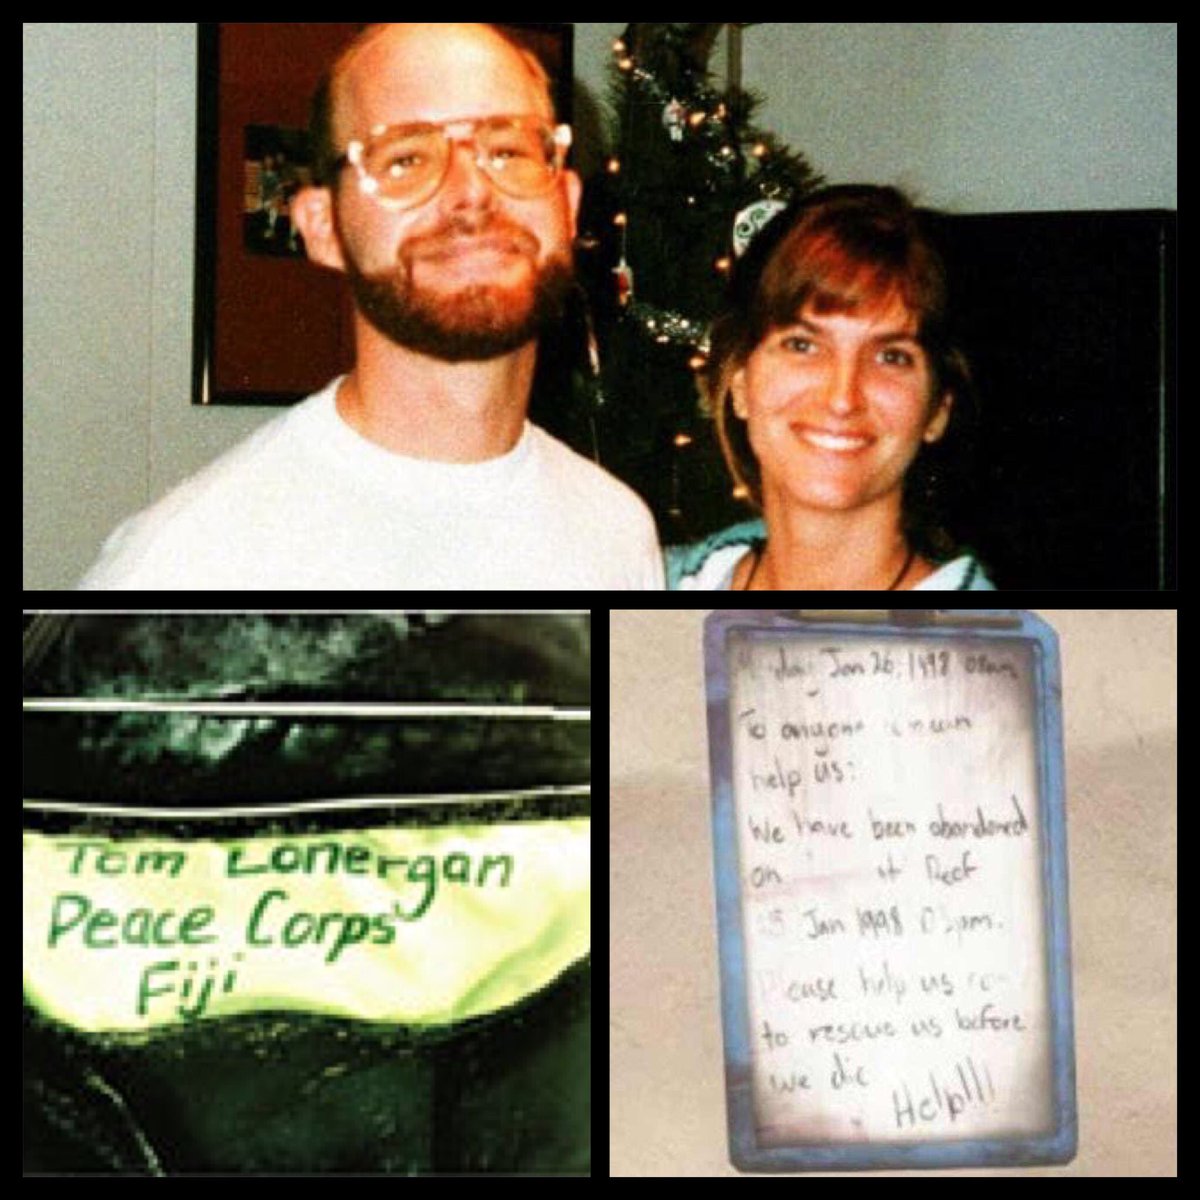 Tom Lonergan
Peace Corps
Fiji
Jan 26, 1998 08am
To anyone
help us:
We have been abandoned
on Reef
Jan 1998
help us
to rescue us before
we die
Help!!!